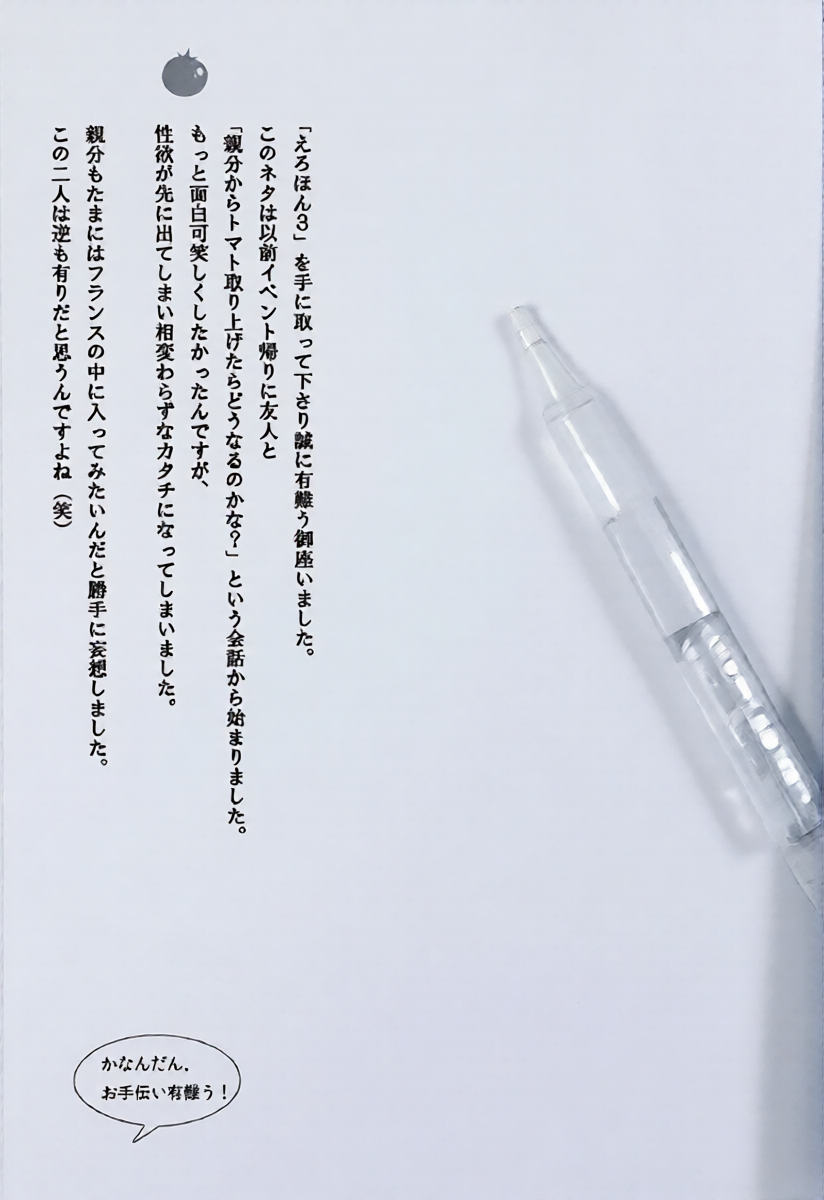 「えろほん3」を手に取って下さり誠に有難う御座いました。
このネタは以前イベント帰りに友人と
「親分からトマト取り上げたらどうなるのかな？」という会話から始まりました。
もっと面白可笑しくしたかったんですが、
性欲が先に出てしまい相変わらずなカタチになってしまいました。
親分もたまにはフランスの中に入ってみたいんだと勝手に妄想しました。
この二人は逆も有りだと思うんですよね（笑）
かなんだん、
お手伝い有難う！